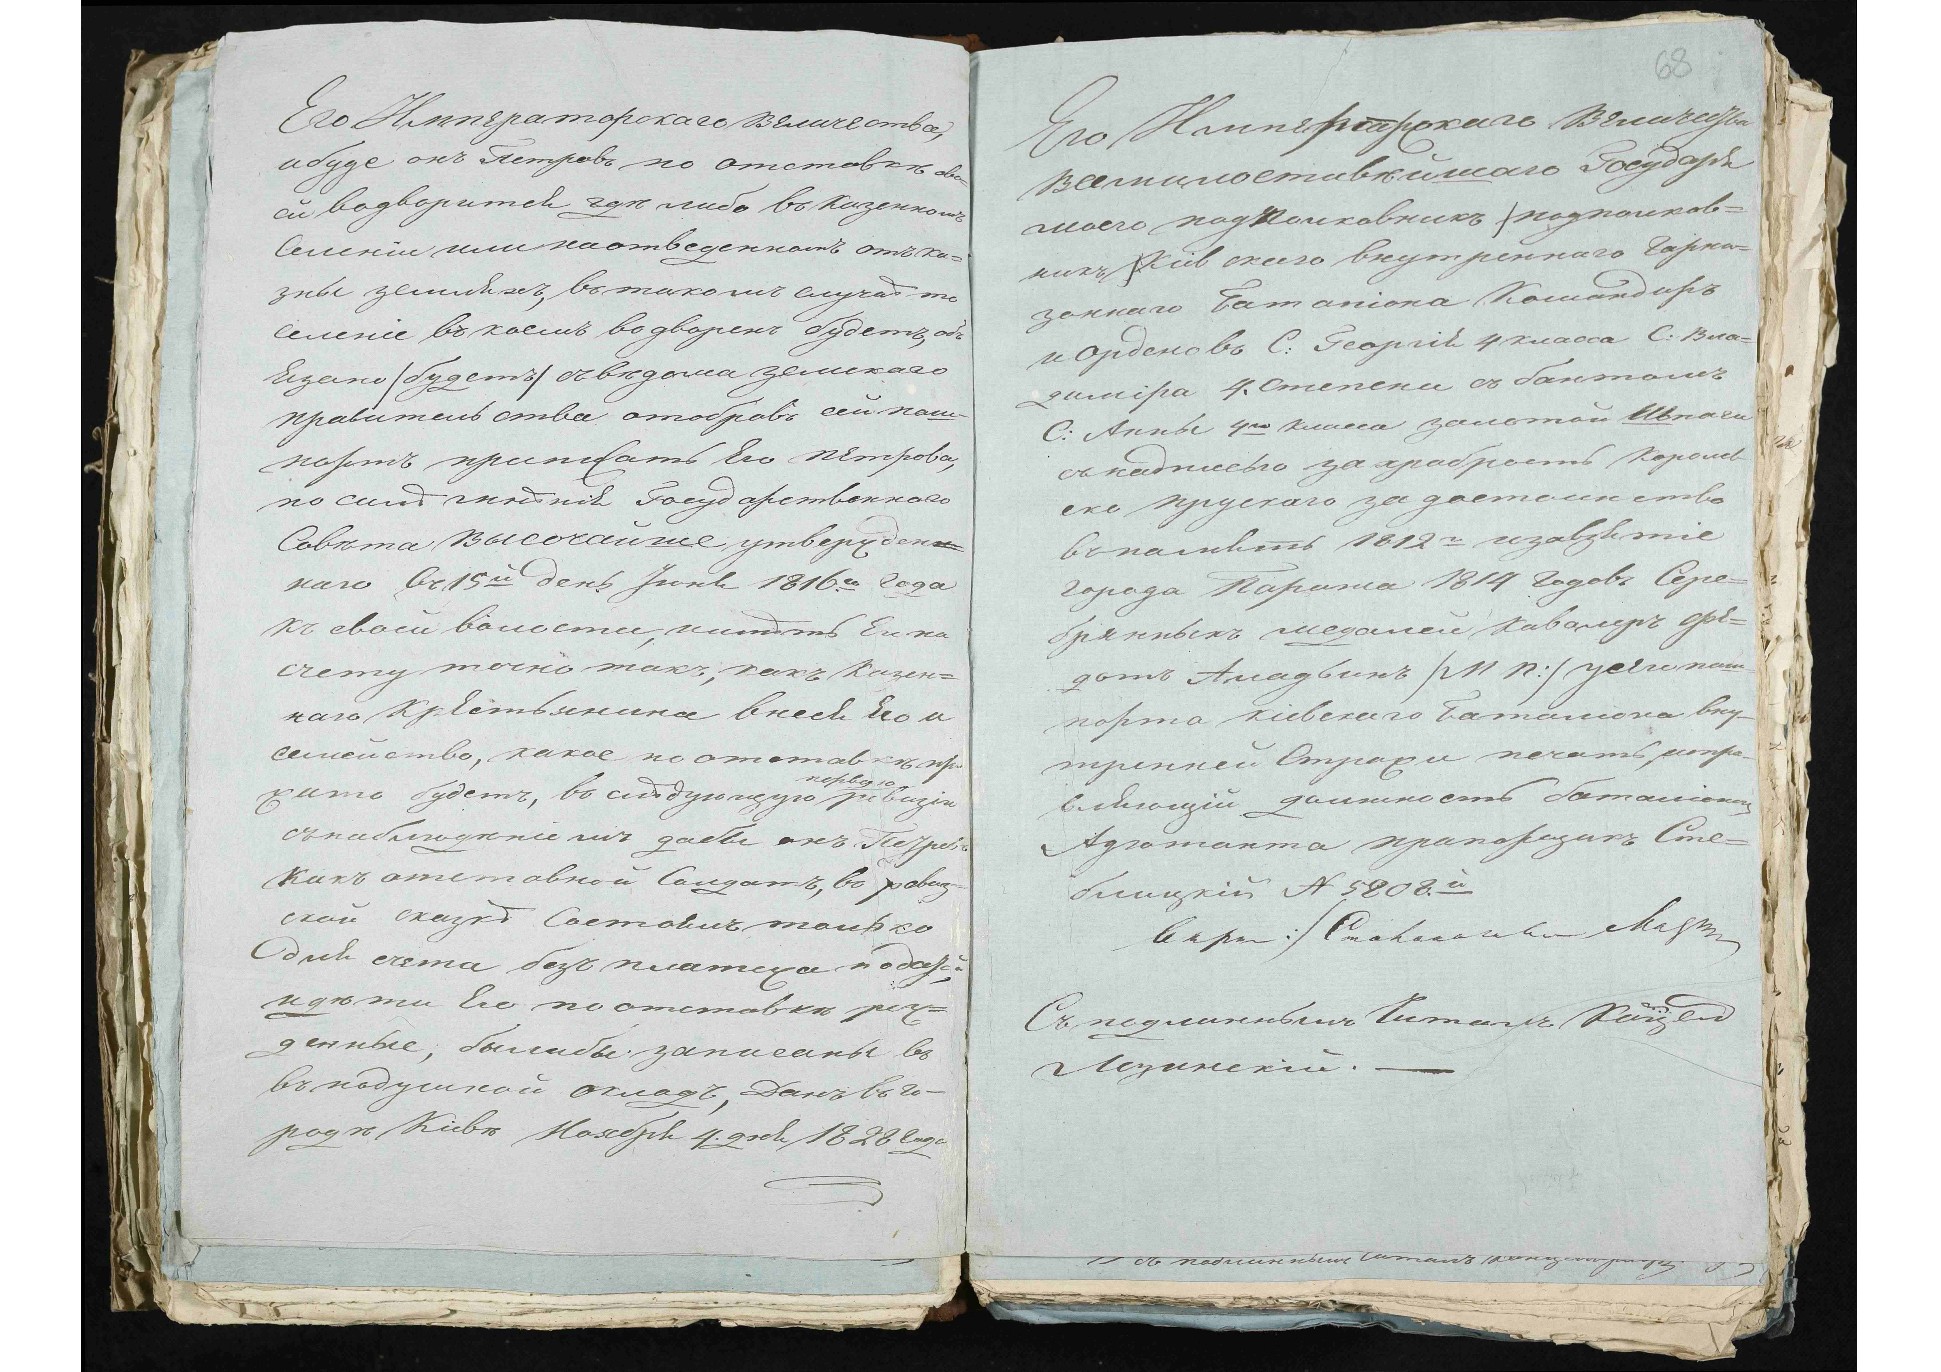 Его Императорскаго Величества,
абуде онъ Петровъ по отставкѣ сво=
ей водворитсѧ гдѣ либо въ Казенномъ
Селеніи или наотведенномъ отъ ка=
зны земляхъ, въ такомъ случаѣ то
селеніе въ коемъ водворенъ будетъ, об
язано /будетъ/ съ вѣдома земскаго
правительства отобравъ сей паш=
портъ приписать Его Петрова,
по силѣ мнѣнія Государственнаго
Совѣта Высочайше утвержден=
наго въ 15й день Іюня 1816го Года
къ своей волости, имѣть Ея на
счету точно такъ, какъ Казен=
наго Крестьянина внеся Его и
семейство, какое по отставкѣ при
первую
жито будетъ, въ слѣдующую ревизію
снаблюденіемъ дабы онъ Петровъ
Какъ отставной Солдатъ, въ ревиз=
ской сказкѣ Состоялъ только
Для счета безъ платежа подат,
идѣти Его по отставкѣ рож=
денные, былибы записаны въ
въ подушной окладъ, Данъ въ го=
родѣ Кіевѣ Ноября 4. дня 1828 Года
68
Его Императорскаго Величества
Всемилостивѣйшаго Государя
моего подполковникъ /подполков=
никъ/ Кіевскаго внутренняго Гарни=
зоннаго Баталіона Командиръ
и Орденовъ С: Георгія 4 класса С: Вла=
диміра 4. Степени съ бантомъ
С: Анны 4го класса золотой Шпаги
съ надписью за храбрость Королев
ско прускаго за достоинство
въ память 1812г изавзятіе
города Парижа 1814 Годовъ Сере=
брянныхъ медалей Кавалеръ Фе=
дотъ /М П:/ усего паш=
порта кіевскаго Баталіона вну=
тренней Стражи печать, испра=
вляющій должность баталіоннаго
Адъютанта прапорщикъ Сте=
блицкій N 5208.й
Съ подлиннымъ Читалъ
Лозинскій.
съ подлиннымъ читалъ